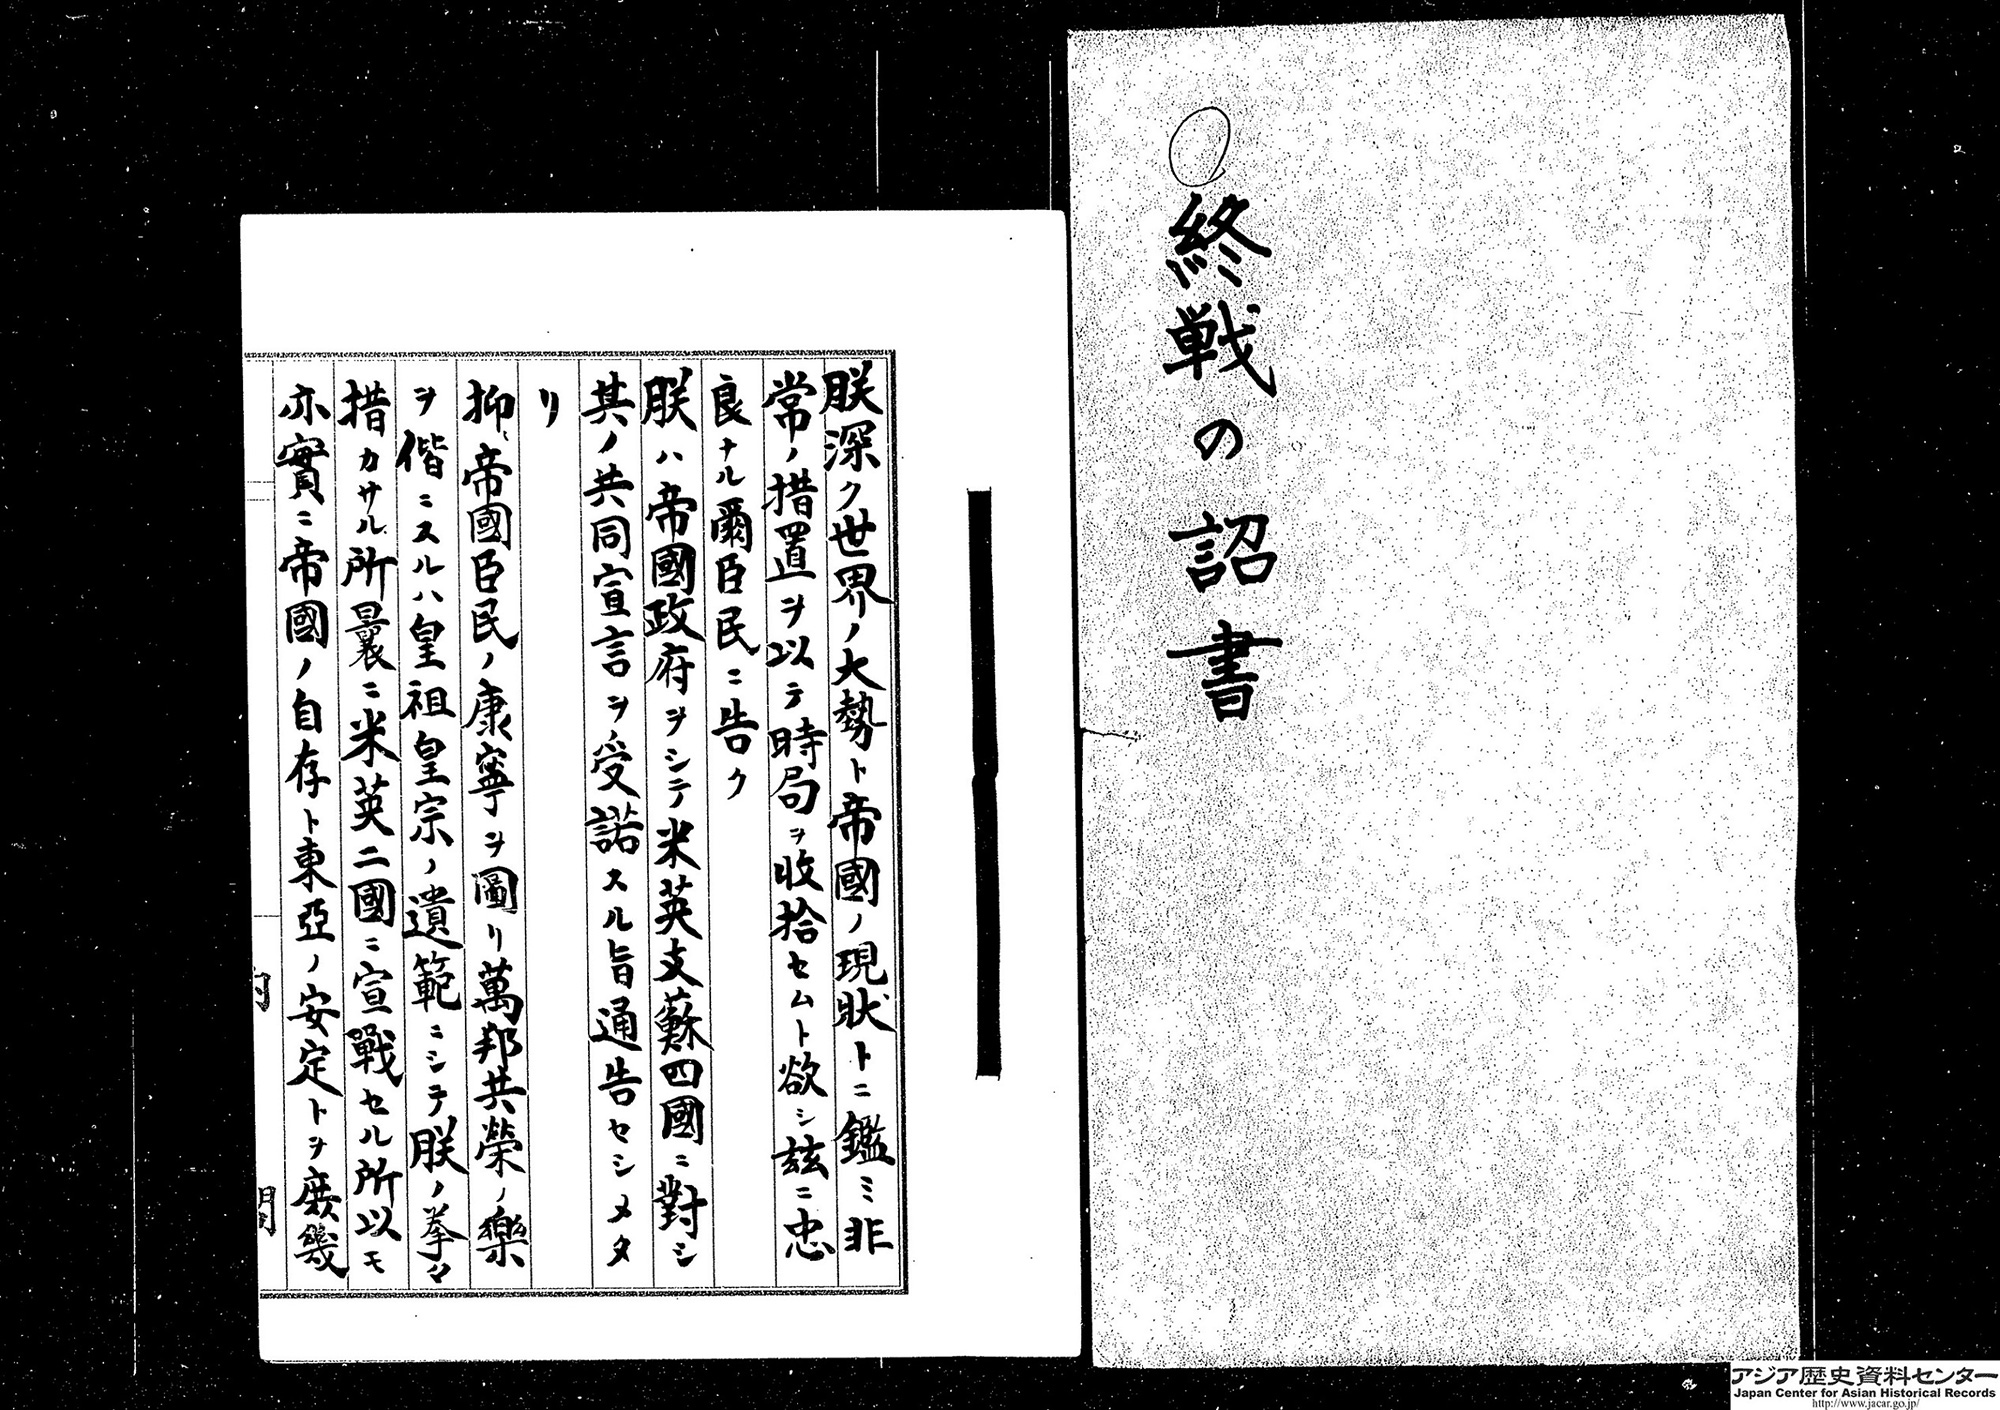 終戦の詔書
朕深ク世界ノ大勢ト帝國ノ現狀トニ鑑ミ非
常ノ措置ヲ以テ時局ヲ收拾セムト欲シ玆ニ忠
良ナル爾臣民ニ告ク
朕ハ帝國政府ヲシテ米英支蘇四國ニ對シ
其ノ共同宣言ヲ受諾スル旨通告セシメタ
リ
抑〻帝國臣民ノ康寧ヲ圖リ萬邦共榮ノ樂
ヲ偕ニスルハ皇祖皇宗ノ遺範ニシテ朕ノ拳〻
措カサル所曩ニ米英二國ニ宣戰セル所以モ
亦實ニ帝國ノ自存ト東亞ノ安定トヲ庶幾
内
閣
アジア歴史資料センター
Japan Center for Asian Historical Records
http://www.jacar.go.jp/